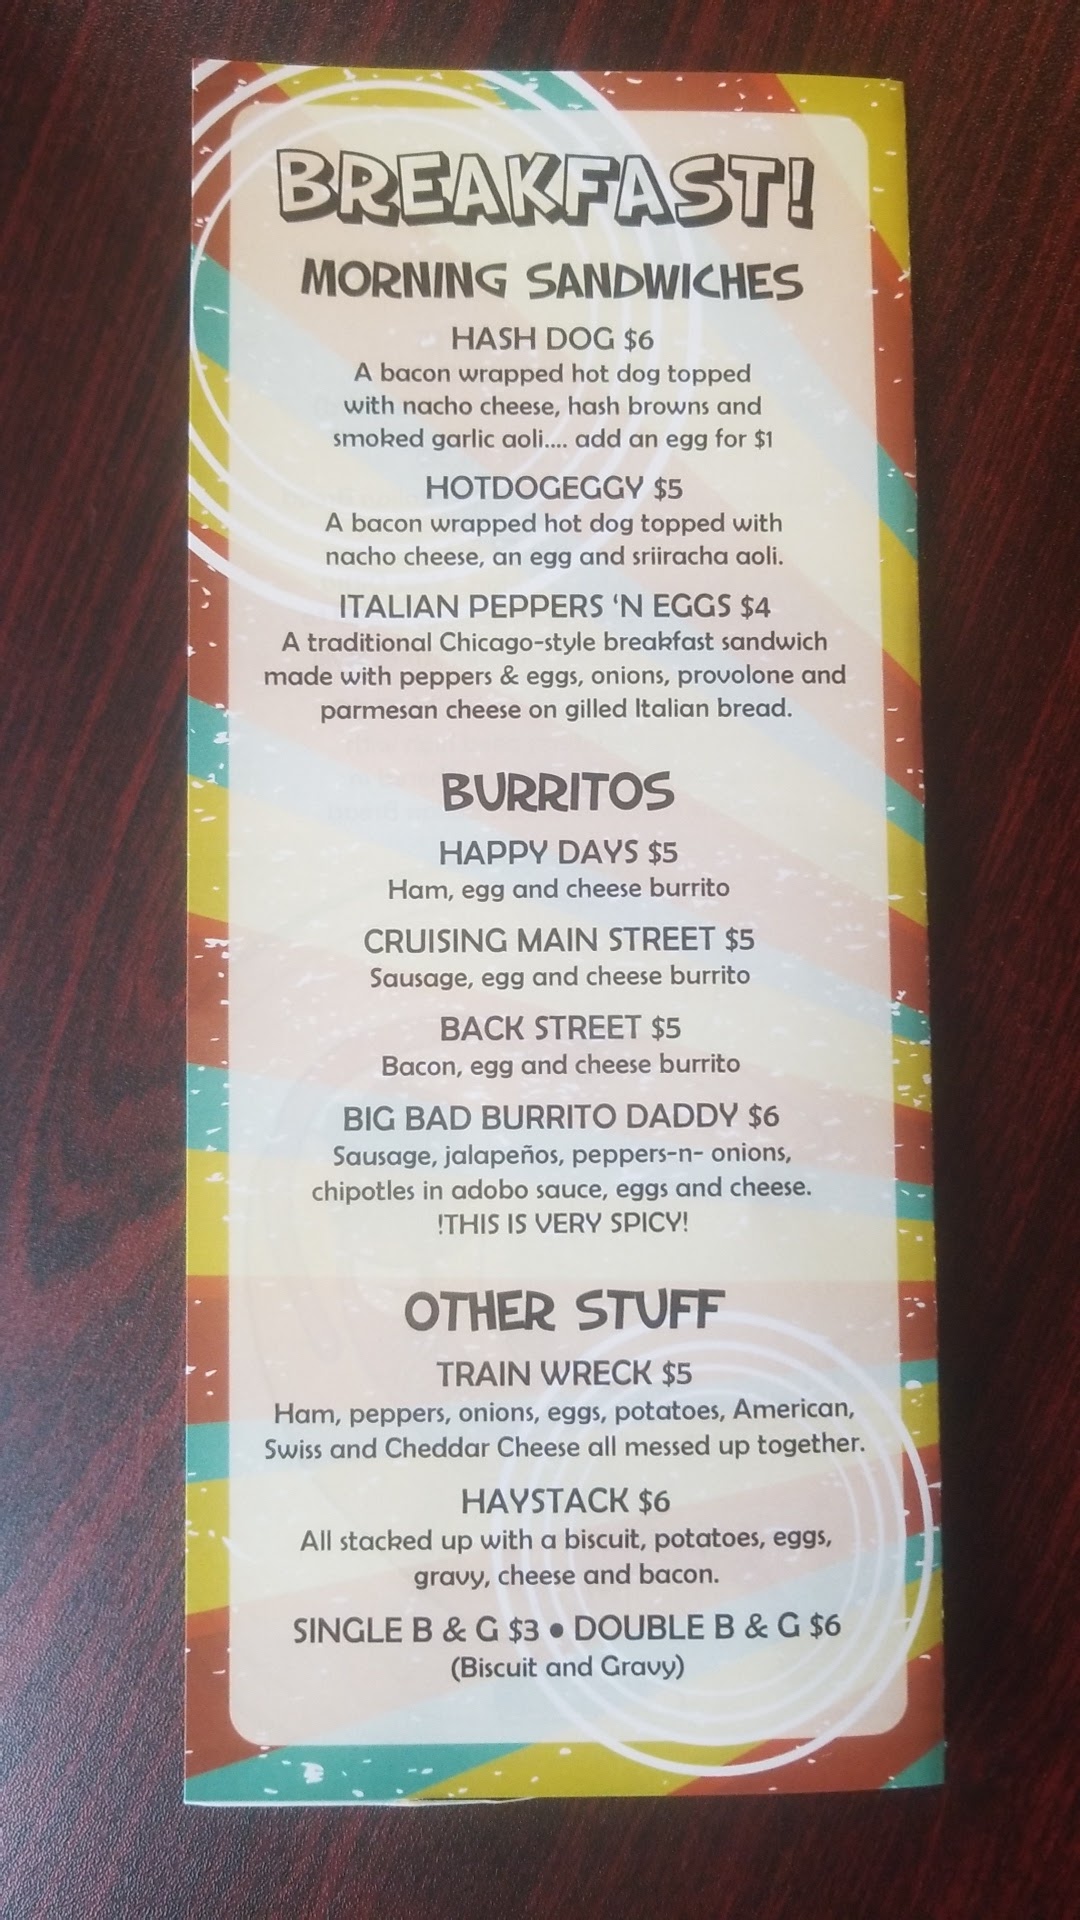 BREAKFAST!
MORNING SANDWICHES
HASH DOG $6
A bacon wrapped hot dog topped
with nacho cheese, hash browns and
smoked garlic aoli.... add an egg for $1
HOTDOGEGGY $5
A bacon wrapped hot dog topped with
nacho cheese, an egg and sriiracha aoli.
ITALIAN PEPPERS ‘N EGGS $4
A traditional Chicago-style breakfast sandwich
made with peppers & eggs, onions, provolone and
parmesan cheese on gilled Italian bread.
BURRITOS
HAPPY DAYS $5
Ham, egg and cheese burrito
CRUISING MAIN STREET $5
Sausage, egg and cheese burrito
BACK STREET $5
Bacon, egg and cheese burrito
BIG BAD BURRITO DADDY $6
Sausage, jalapeños, peppers-n- onions,
chipotles in adobo sauce, eggs and cheese.
!THIS IS VERY SPICY!
OTHER STUFF
TRAIN WRECK $5
Ham, peppers, onions, eggs, potatoes, American,
Swiss and Cheddar Cheese all messed up together.
HAYSTACK $6
All stacked up with a biscuit, potatoes, eggs,
gravy, cheese and bacon.
SINGLE B & G $3 • DOUBLE B & G $6
(Biscuit and Gravy)